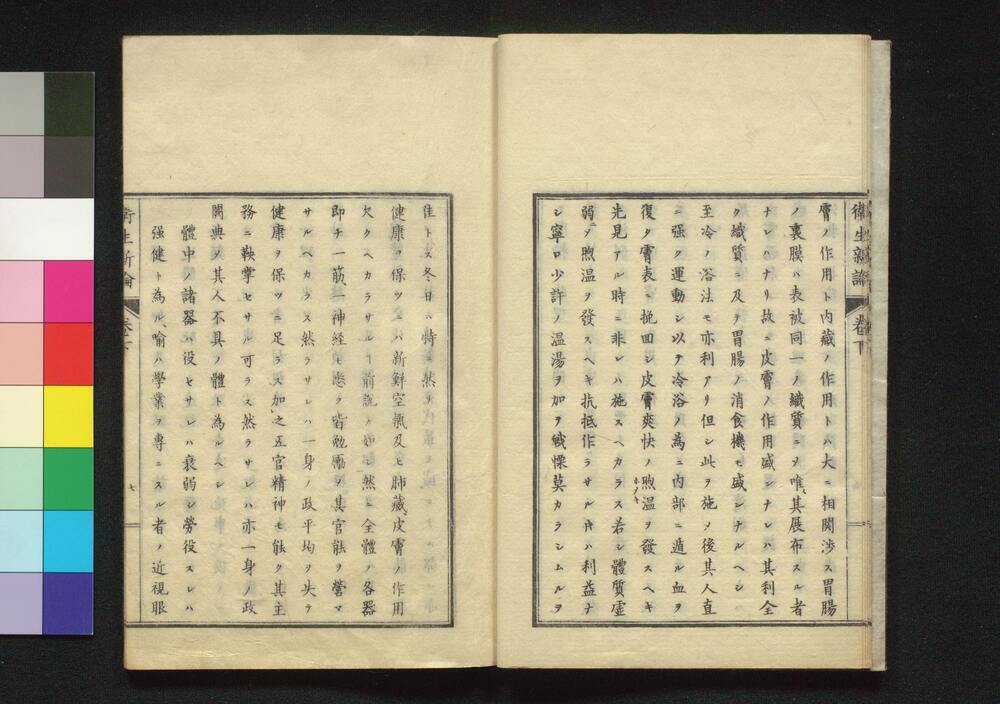 衛生新論 巻下
膚ノ作用ト内藏ノ作用トハ大ニ相関渉ス胃腸
ノ裏膜ハ表被同一ノ織質ニヲ唯其展布スル者
ナレハナリ故ニ皮膚ノ作用盛ンナレハ其利全
ク織質ニ及ヲ胃腸ノ消食機モ盛ンナルヘシ
至冷ノ浴法モ亦利アリ但シ此ヲ施メ後其人直
ニ强ク運動シ以テ冷浴ノ為ニ内部ニ遁ル血ヲ
復タ膚表ニ挽回シ皮膚爽快ノ煦温ヲ發スヘキ
先見アル時ニ非レハ施スヘカラス若シ體質虚
弱ソ煦温ヲ發スヘキ抗抵作ラサル片ハ利益ナ
シ寧ロ少許ノ温湯ヲ加ヲ戦慄莫カラシムルヲ
佳トス冬日ハ特ニ然リ
健康ヲ保ツニハ新鮮空氣及ヒ肺藏皮膚ノ作用
欠クヘカラサルヿ前説ノ如シ然ニ全體ノ各器
即チ一筋一神経モ悉ク皆勉勵ヲ其官能ヲ營マ
サルヘカラス然ラサレハ一身ノ政平均ヲ失ヲ
健康ヲ保ツニ足ラス加之五官精神モ能ク其主
務ニ鞅掌セサル可ラス然ラサレハ亦一身ノ政
闕典ソ其人不具ノ體ト為ルヘシ
體中ノ諸器ハ役セサレハ衰弱シ勞役スレハ
强健ト為ル喩ハ學業ヲ專ニスル者ノ近視眼
衛生新論 七